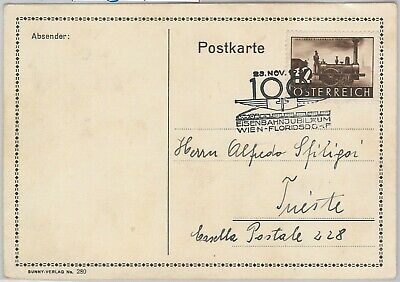 Absender:
Postkarte
23. NOV.
100
ÖSTERREICH
EISENBAHNJUBILÄUM
WIEN-FLORIDSDORF
Herrn Alfredo Spiligoi
Trieste
Casella Postale 228
SUNNY-VERLAG No. 280